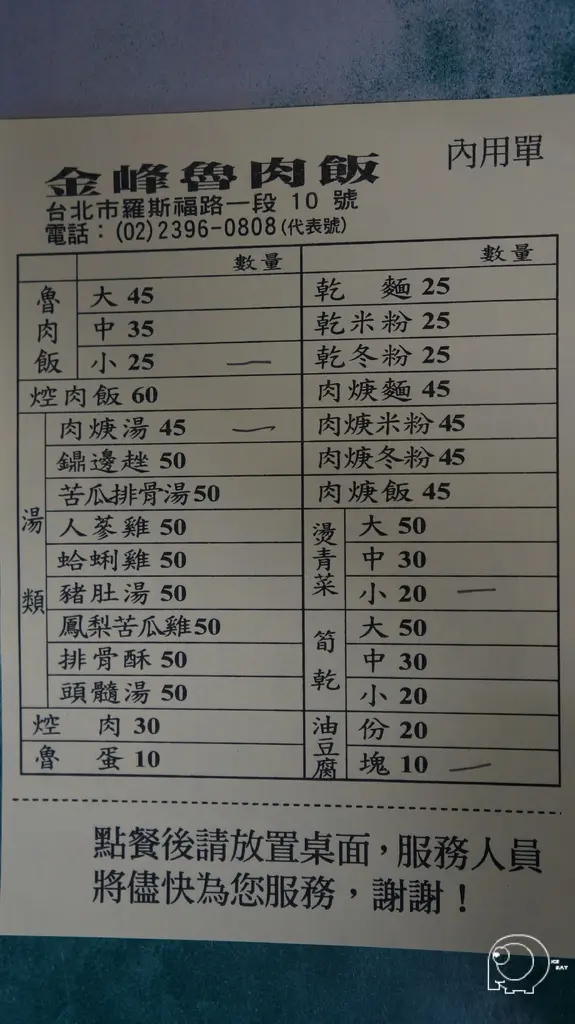 金峰魯肉飯
內用單
台北市羅斯福路一段 10 號
電話：(02)2396-0808(代表號)
數量
魯肉飯
大 45
中 35
小 25 一
焢肉飯 60
湯類
肉焿湯 45 一
鼎邊趖 50
苦瓜排骨湯50
人蔘雞 50
蛤蜊雞 50
豬肚湯 50
鳳梨苦瓜雞50
排骨酥 50
頭髓湯 50
焢 肉 30
魯 蛋 10
數量
乾 麵 25
乾米粉 25
乾冬粉 25
肉焿麵 45
肉焿米粉 45
肉焿冬粉 45
肉焿飯 45
燙青菜
大 50
中 30
小 20 一
筍乾
大 50
中 30
小 20
油豆腐
份 20
塊 10 一
點餐後請放置桌面，服務人員
將儘快為您服務，謝謝！